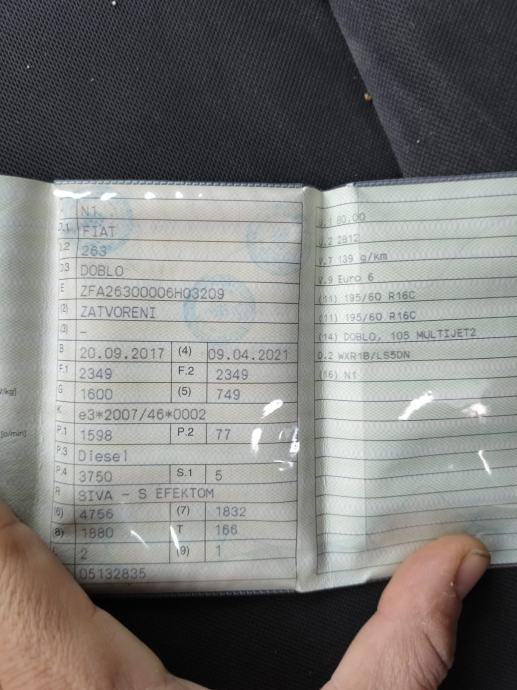 N1
D.1 FIAT
D.2 263
D.3 DOBLO
E ZFA26300006H03209
(2) ZATVORENI
(3) -
B 20.09.2017 (4) 09.04.2021
F.1 2349 F.2 2349
G 1600 (5) 749
K e3*2007/46*0002
P.1 1598 P.2 77
P.3 Diesel
P.4 3750 S.1 5
R SIVA - S EFEKTOM
(6) 4756 (7) 1832
(8) 1880 T 166
2 (9) 1
05132835
/kg]
[o/min]
80.00
2812
V.7 139 g/km
V.9 Euro 6
(11) 195/60 R16C
(11) 195/60 R16C
(14) DOBLO, 105 MULTIJET2
D.2 WXR1B/LS5DN
(16) N1